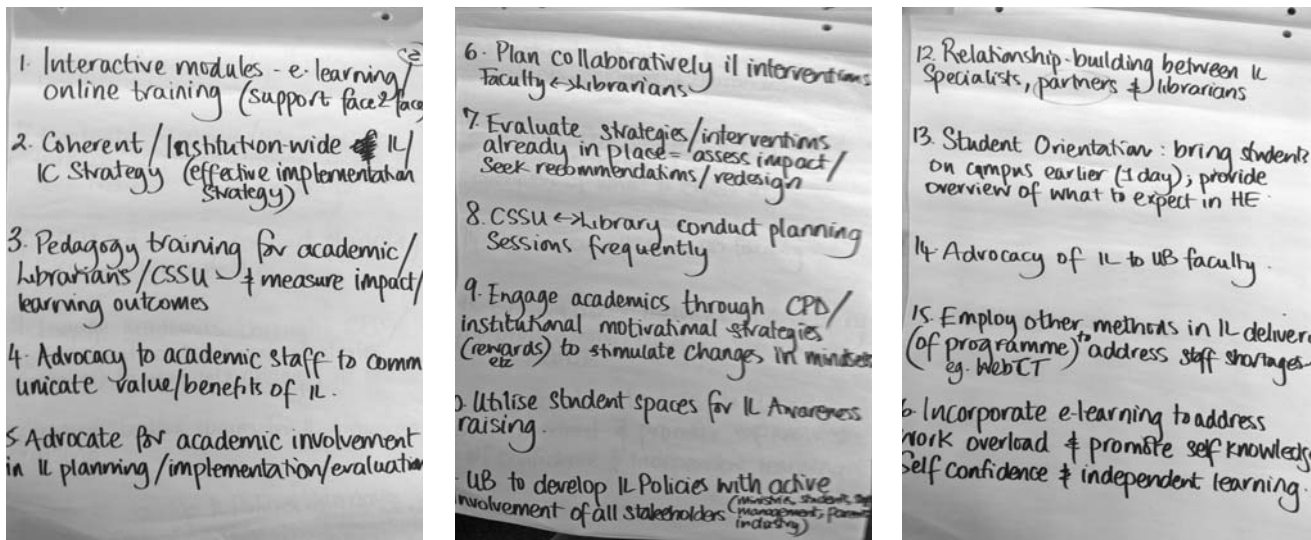 1. Interactive modules - e-learning/
online training (support face 2 face
2. Coherent/Institution-wide IL/
IC Strategy (effective implementation
Strategy)
3. Pedagogy training for academic/
Librarians/CSSU & measure impact/
learning outcomes
4. Advocacy to academic staff to comm
unicate value/benefits of IL.
5 Advocate for academic involvement
in IL planning/implementation/evaluation
6. Plan collaboratively il interventions
Faculty ↔ Librarians
7. Evaluate strategies/interventions
already in place = assess impact/
Seek recommendations/redesign
8. CSSU ↔ Library conduct planning
Sessions frequently
9. Engage academics through CPD/
institutional motivational strategies
(rewards) to stimulate changes in mindset
etc
Utilise student spaces for IL Awareness
raising.
UB to develop IL Policies with active
involvement of all stakeholders (students,
management, parents
industry)
12. Relationship-building between IL
Specialists, partners & librarians
13. Student Orientation: bring students
on campus earlier (1 day); provide
overview of what to expect in HE.
14. Advocacy of IL to UB faculty.
15. Employ other methods in IL deliver
(of programme) to address staff shortages
eg. WebCT
6. Incorporate e-learning to address
work overload & promote self knowledge
Self confidence & independent learning.